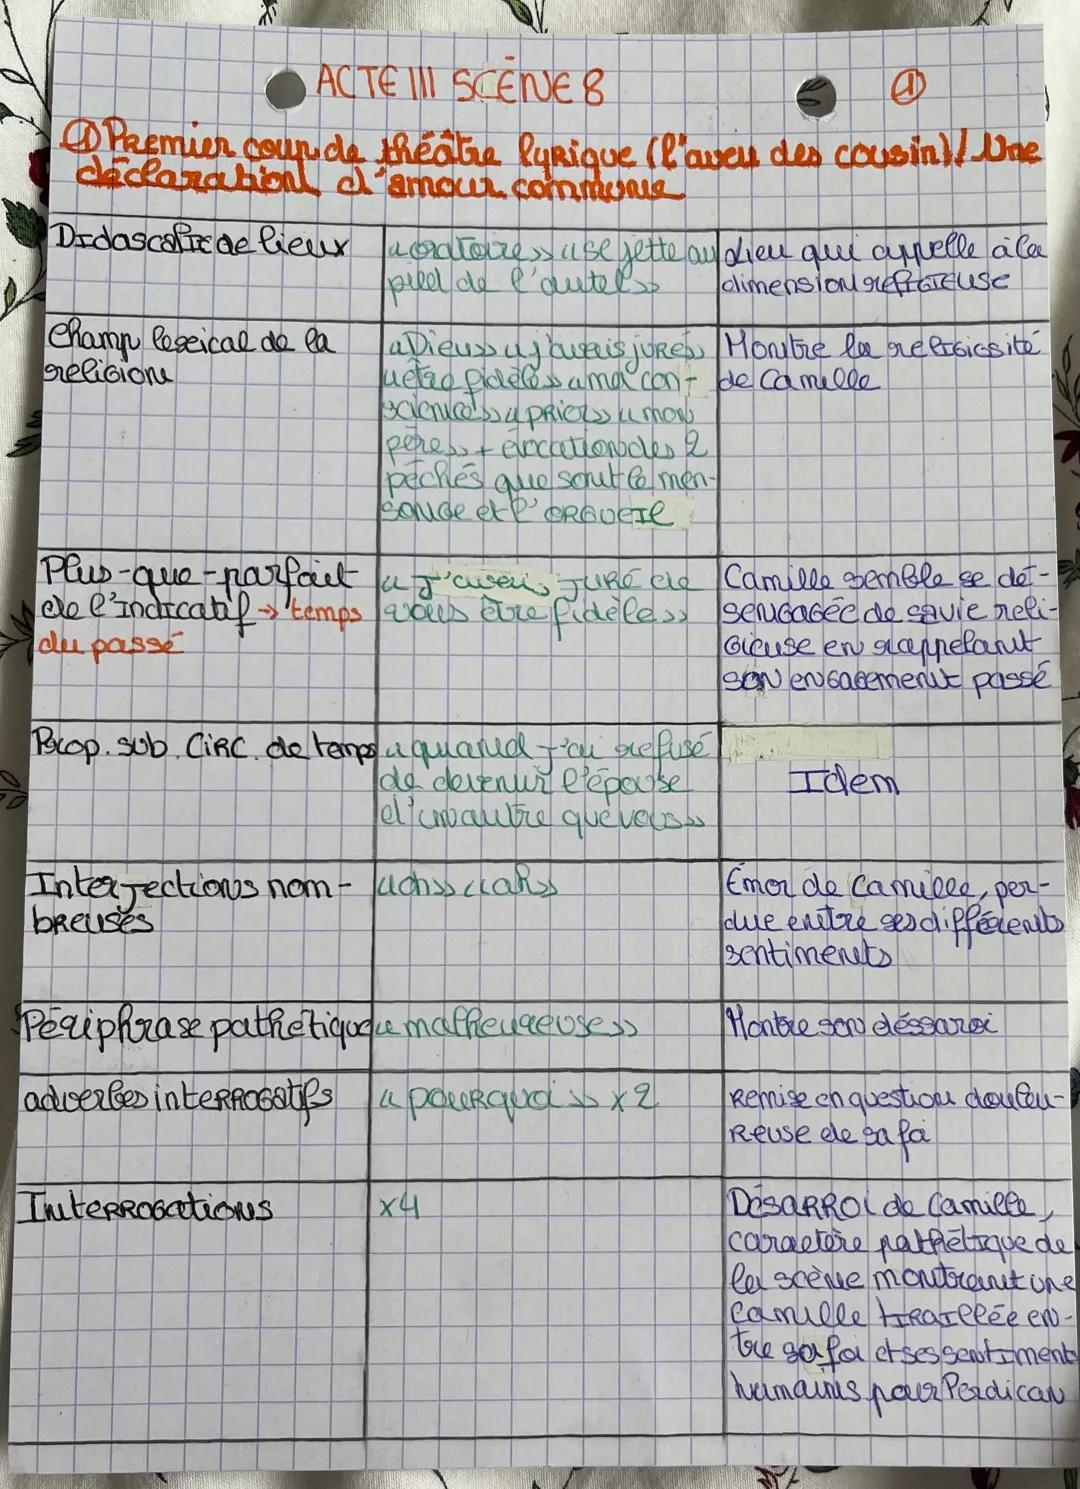 ACTE III SCÈNE 8
①
① Premier coup de théâtre lyrique (l'aveu des cousin)/ Une
déclaration d'amour commune
Didascalie de lieux
« oratoire » « se jette au
pied de l'autel »
Lieu qui appelle à la
dimension religieuse
Champ lexical de la
religion
« Dieu » « j'avais juré »
« être fidèle » « ma con-
science » « prier » « mon
père » + évocation des 2
péchés que sont le men-
songe et l'orgueil
Montre la religiosité
de Camille
Plus-que-parfait
de l'indicatif → temps
du passé
« J'avais juré de
vous être fidèle »
Camille semble se dé-
sengagée de sa vie reli-
gieuse en rappelant
son engagement passé
Prop. sub. circ. de temps
« quand j'ai refusé
de devenir l'épouse
d'un autre que vous »
Idem
Interjections nom-
breuses
« oh » « ah »
Émoi de Camille, per-
due entre ses différents
sentiments
Périphrase pathétique
« malheureuse »
Montre son désarroi
adverbes interrogatifs
« pourquoi » x2
Remise en question doulou-
reuse de sa foi
Interrogations
x4
Désarroi de Camille,
caractère pathétique de
la scène montrant une
Camille tiraillée en-
tre sa foi et ses sentiments
humains pour Perdican